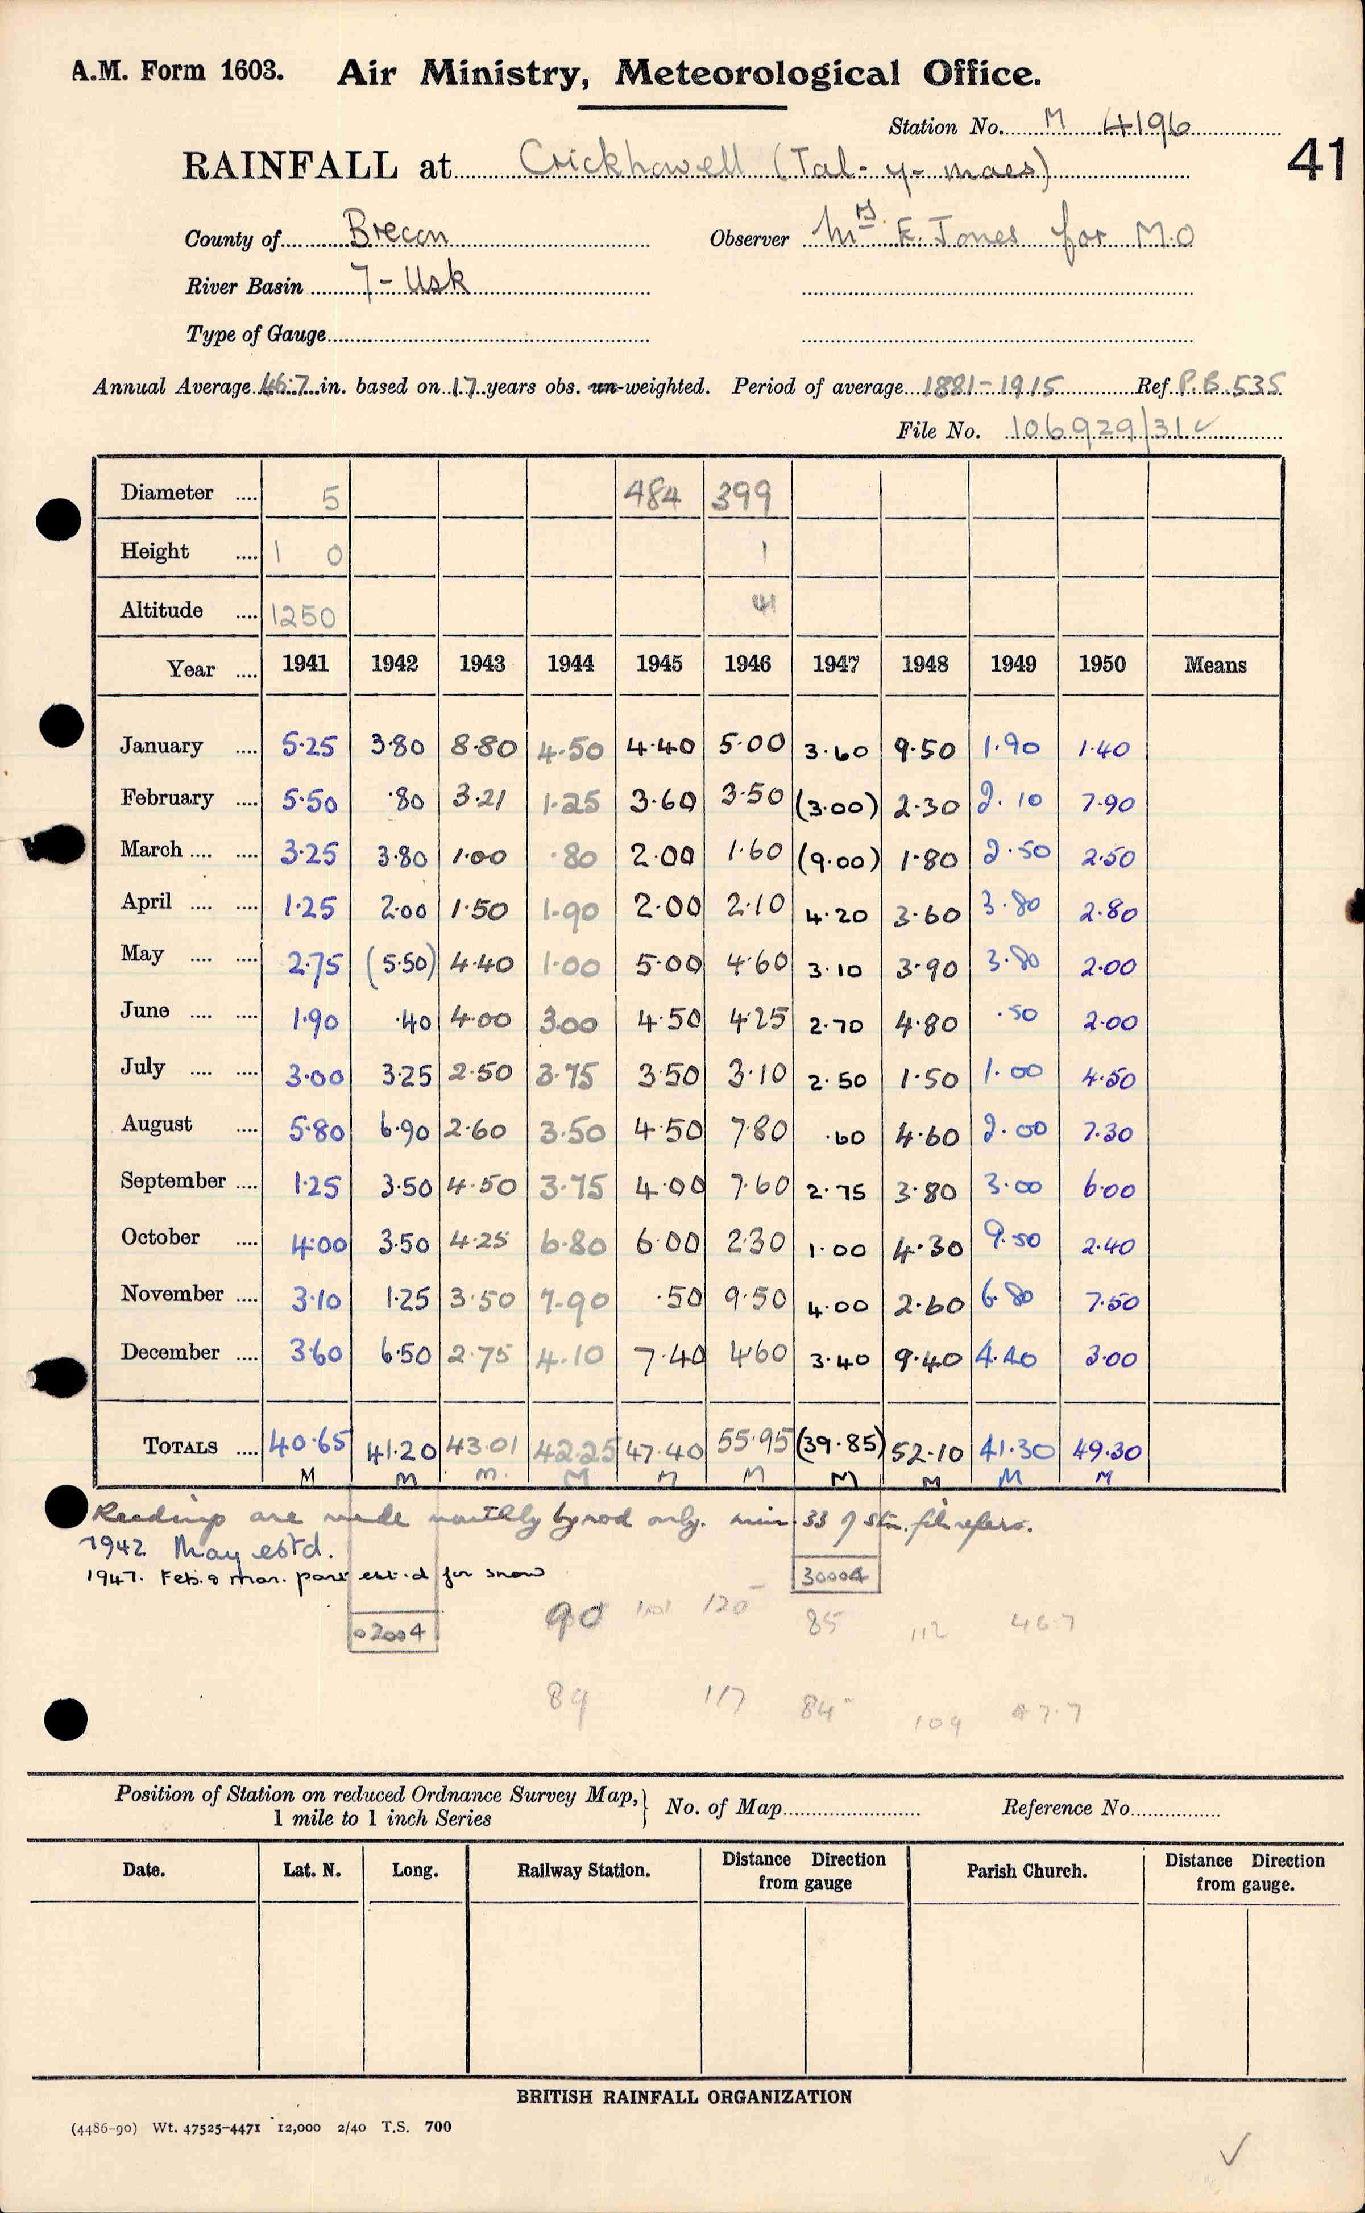 A.M. Form 1603. Air Ministry, Meteorological Office.
Station No. M 4196
41
RAINFALL at Crickhowell (Tal-y-maes)
County of Brecon Observer Mrs E. Jones for M.O
River Basin 7 - Usk
Type of Gauge
Annual Average 46.7 in. based on 17 years obs. un-weighted. Period of average 1881-1915 Ref P.B.535
File No. 106929/31
Diameter .... 5 484 399
Height .... 1 0 1
Altitude .... 1250 41
Year .... 1941 1942 1943 1944 1945 1946 1947 1948 1949 1950 Means
January .... 5.25 3.80 8.80 4.50 4.40 5.00 3.60 9.50 1.90 1.40
February .... 5.50 .80 3.21 1.25 3.60 3.50 (3.00) 2.30 2.10 7.90
March .... .... 3.25 3.80 1.00 .80 2.00 1.60 (9.00) 1.80 2.50 2.50
April .... .... 1.25 2.00 1.50 1.90 2.00 2.10 4.20 3.60 3.80 2.80
May .... .... 2.75 (5.50) 4.40 1.00 5.00 4.60 3.10 3.90 3.80 2.00
June .... .... 1.90 .40 4.00 3.00 4.50 4.25 2.70 4.80 .50 2.00
July .... .... 3.00 3.25 2.50 3.75 3.50 3.10 2.50 1.50 1.00 4.50
August .... 5.80 6.90 2.60 3.50 4.50 7.80 .60 4.60 2.00 7.30
September .... 1.25 3.50 4.50 3.75 4.00 7.60 2.75 3.80 3.00 6.00
October .... 4.00 3.50 4.25 6.80 6.00 2.30 1.00 4.30 9.50 2.40
November .... 3.10 1.25 3.50 7.90 .50 9.50 4.00 2.60 6.80 7.50
December .... 3.60 6.50 2.75 4.10 7.40 4.60 3.40 9.40 4.40 3.00
TOTALS .... 40.65 41.20 43.01 42.25 47.40 55.95 (39.85) 52.10 41.30 49.30
M M M M M M M M M M
Readings are made monthly by rod only. min. 33 of stn. file refers.
1942 May est'd.
1947. Feb. & Mar. part est.d for snow
30004
90 101 120 85 112 46.7
02004
89 117 84 109 47.7
Position of Station on reduced Ordnance Survey Map, No. of Map Reference No.
1 mile to 1 inch Series
Date. Lat. N. Long. Railway Station. Distance Direction from gauge Parish Church. Distance Direction from gauge.
BRITISH RAINFALL ORGANIZATION
(4486-90) Wt. 47525-4471 12,000 2/40 T.S. 700